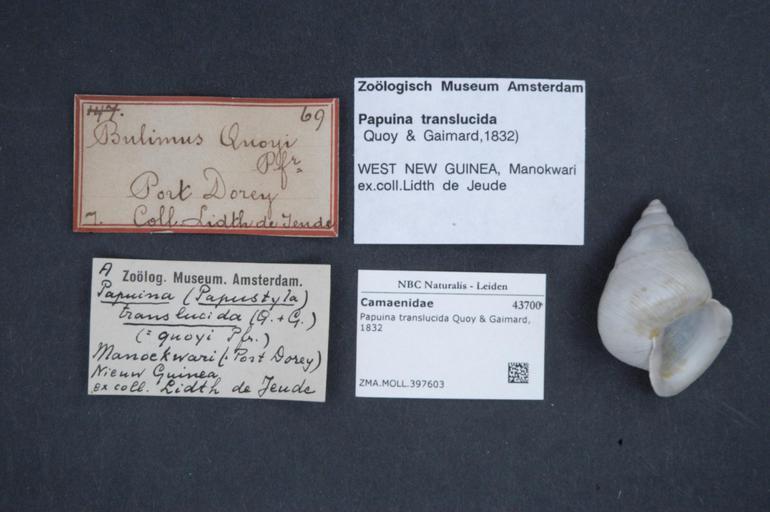 147. 69
Bulimus Quoyi
Pfr
Port Dorey
7. Coll. Lidth de Jeude
Zoölogisch Museum Amsterdam
Papuina translucida
Quoy & Gaimard,1832)
WEST NEW GUINEA, Manokwari
ex.coll.Lidth de Jeude
A Zoölog. Museum. Amsterdam.
Papuina (Papustyla)
translucida (Q. + G.)
(= quoyi Pfr.)
Manockwari (: Port Dorey)
Nieuw Guinea
ex coll. Lidth de Jeude
NBC Naturalis - Leiden
Camaenidae 43700
Papuina translucida Quoy & Gaimard,
1832
ZMA.MOLL.397603